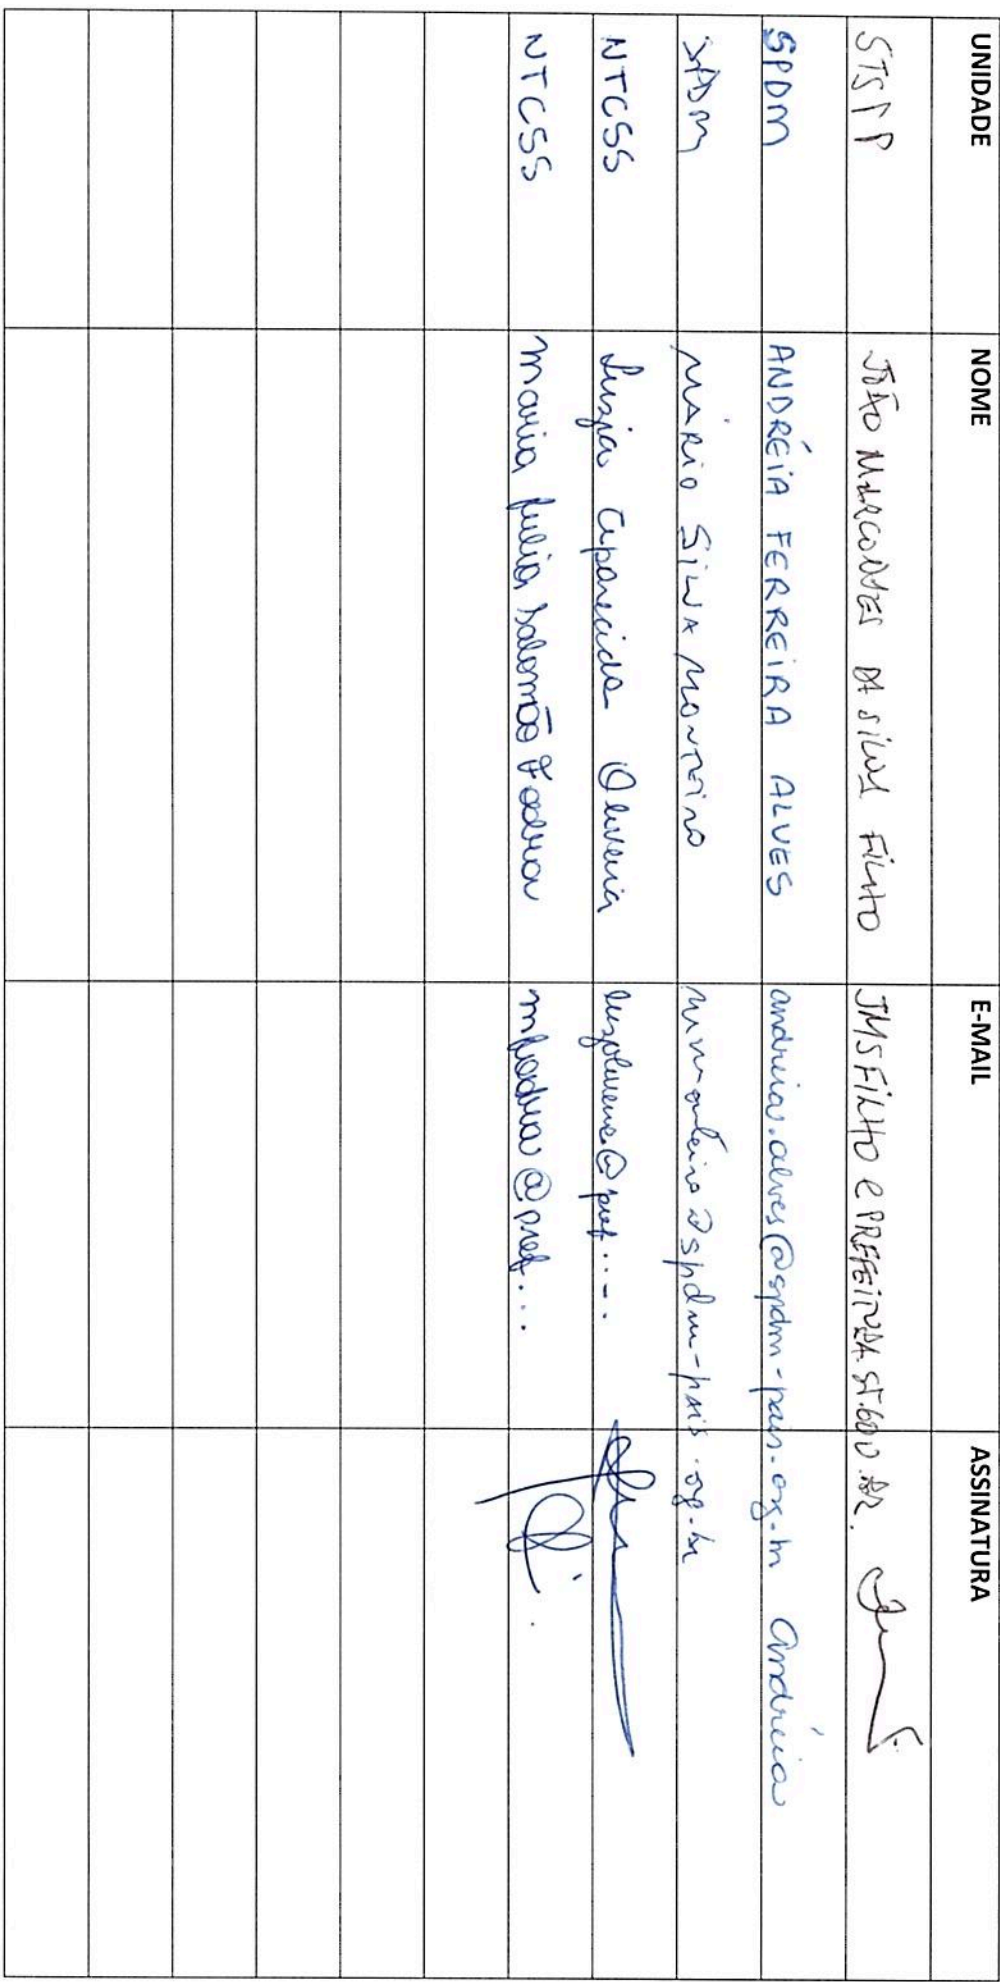 UNIDADE NOME E-MAIL ASSINATURA
JOÃO MARCONDES DA SILVA FILHO JMSFILHO@PREFEITURA.SP.GOV.BR.
SPDM ANDRÉIA FERREIRA ALVES andreia.alves@spdm-pais.org.br Andréia
SPDM MÁRIO SILVA MONTEIRO @spdm-pais.org.br
NTCSS Luzia Aparecida Oliveira @pref....
NTCSS Maria Julia Salomão @pref...